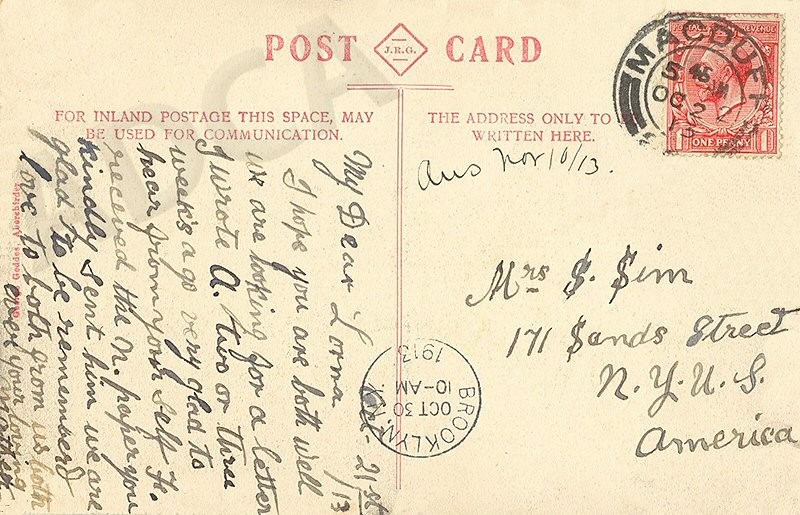 POST CARD
J.R.G.
FOR INLAND POSTAGE THIS SPACE, MAY
BE USED FOR COMMUNICATION.
THE ADDRESS ONLY TO
WRITTEN HERE.
MACDUFF
OC 21
13
POSTAGE REVENUE
ONE PENNY
Ans Nov 10/13.
Mrs S. Sim
171 Sands Street
N.Y.U.S.
America
BROOKLYN, N.Y.
OCT 30
10-AM
1913
21st/13
My Dear Lorna
I hope you are both well
we are looking for a letter
I wrote A. two or three
week's ago very glad to
hear from your self F.
received the N. paper you
kindly sent him we are
glad to be rememberd
love to both from us both
ever your loving
Mother
Geddes, Aberchirder
DCA